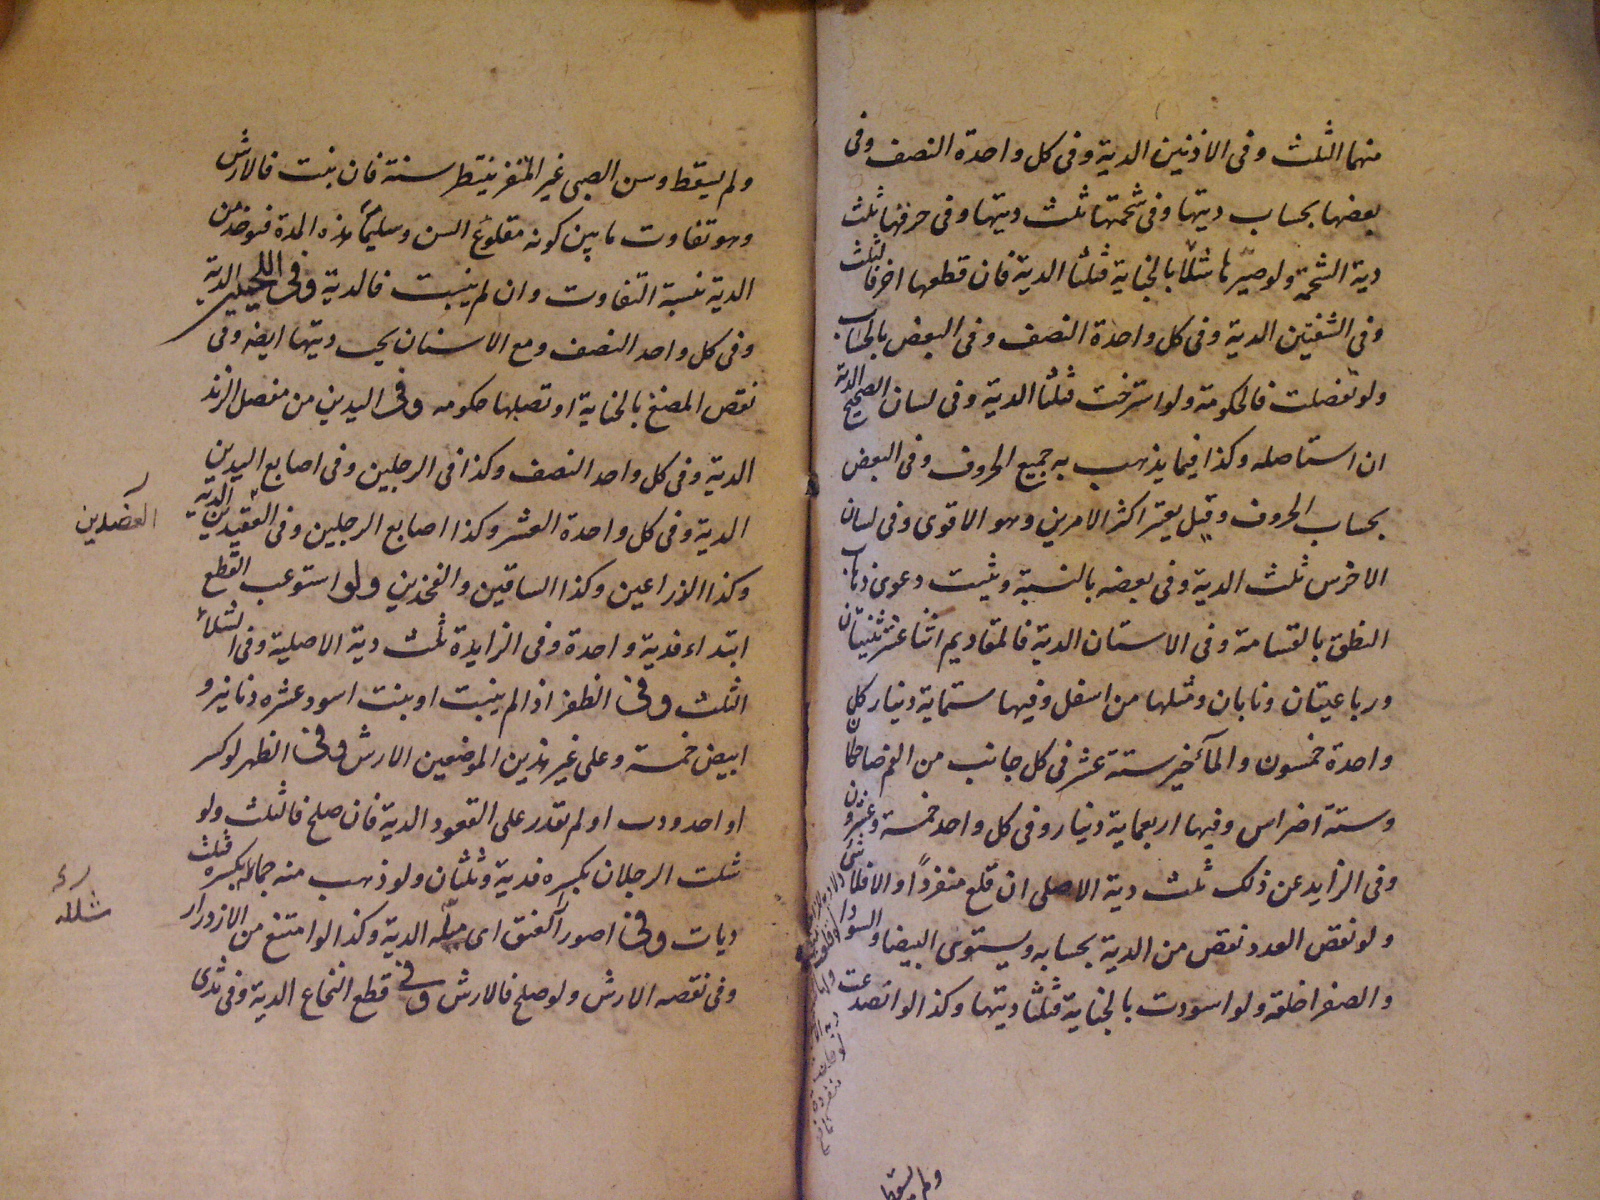 منهما الثلث وفى الاذنين الدية وفى كل واحدة النصف وفى
بعضها بحساب ديتها وفى شحمتها ثلث ديتها وفى خرقها ثلث
دية الشحمة ولو صيرها شللا بالجناية فثلثا الدية فان قطعها اخر فالثلث
وفى الشفتين الدية وفى كل واحدة النصف وفى البعض بالحساب
ولو تقلصت فالحكومة ولو استرخت فثلثا الدية وفى لسان الصحيح الدية
ان استاصله وكذا فيما يذهب به جميع الحروف وفى البعض
بحساب الحروف وقيل يعتبر اكثر الامرين وهو الاقوى وفى لسان
الاخرس ثلث الدية وفى بعضه بالنسبة ويثبت دعوى ذهاب
النطق بالقسامة وفى الاسنان الدية فالمقاديم اثنا عشر ثنيتان
ورباعيتان ونابان ومثلها من اسفل وفيها ستماية دينار كل
واحدة خمسون والمآخير ستة عشر فى كل جانب من الفم ضاحكان
وستة اضراس وفيها اربعماية دينار وفى كل واحد خمسة وعشرون
وفى الزايد عن ذلك ثلث دية الاصلى ان قلع منفردًا والا فلا شئ
ولو نقص العدد نقص من الدية بحسابه ويستوى البيضا والسودا
والصفرا خلقة ولو اسودت بالجناية فثلثا ديتها وكذا لو انصدعت
ولم يسقط
ولم يسقط وسن الصبى غير المثغر ينتظر سنة فان نبت فالارش
وهو تفاوت ما بين كونه مقلوع السن وسليمًا هذه المدة فيؤخذ من
الدية بنسبة التفاوت وان لم ينبت فالدية وفى اللحيين الدية
وفى كل واحد النصف ومع الاسنان يجب ديتها ايضه وفى
نقص المضغ بالجناية او تصلبها حكومه وفى اليدين من مفصل الزند
الدية وفى كل واحد النصف وكذا فى الرجلين وفى اصابع اليدين
الدية وفى كل واحدة العشر وكذا اصابع الرجلين وفى العضدين الدية
العضدين
وكذا الذراعين وكذا الساقين والفخذين ولو استوعب القطع
ابتداء فدية واحدة وفى الزايدة ثلث دية الاصلية وفى الشلاء
الثلث وفى الظفر اذا لم ينبت او نبت اسود عشره دنانير و
ابيض خمسة وعلى غير هذين الموضعين الارش وفى الظهر لو كسر
او احدودب او لم تقدر على القعود الدية فان صلح فالثلث ولو
شلت الرجلان بكسره فدية وثلثان ولو ذهب منه جماعه بكسره فثلث
شلله
ديات وفى اصور العنق اى ميله الدية وكذا لو امتنع من الازدرار
وفى نقصه الارش ولو صلح فالارش وفى قطع النخاع الدية وفى ثدى